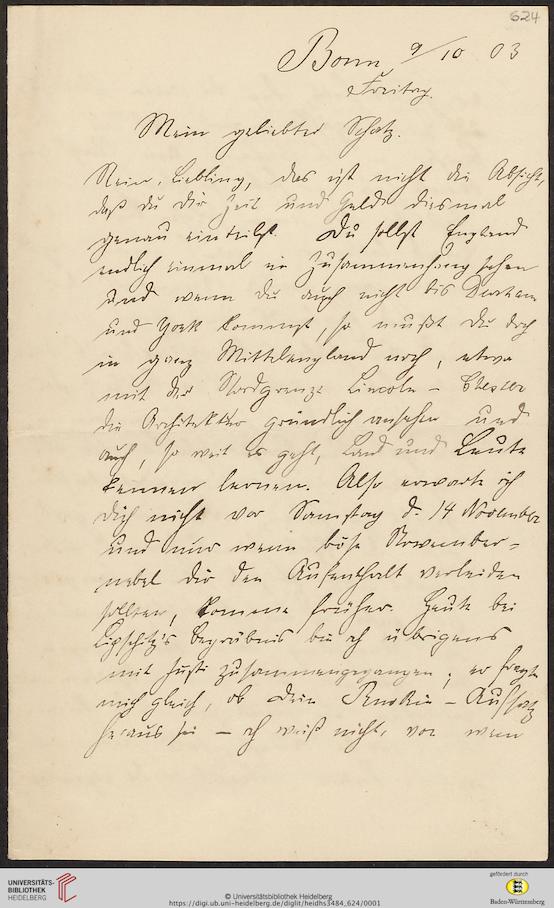 624
Bonn 9/10 03
Freitag.
Mein geliebter Schatz.
Nein, Liebling, das ist nicht die Absicht,
daß du dir Zeit und Geld diesmal
genau einteilst. Du sollst England
endlich einmal im Zusammenhang sehen
und wenn du auch nicht bis Durham
und York kommst, so mußt du doch
in ganz Mittelengland noch, etwa
mit der Nordgrenze Lincoln - Chester
die Architektur gründlich ansehen und
auch, so weit es geht, Land und Leute
kennen lernen. Also erwarte ich
dich nicht vor Samstag d. 14 November
und nur wenn böse November-
nebel dir den Aufenthalt verleiden
sollten, komme früher. Heute bei
Lipschitz's Begräbnis bin ich übrigens
mit Justi zusammengegangen; er fragte
mich gleich, ob dein Ruskin-Aufsatz
heraus sei — ich weiß nicht, von wem
UNIVERSITÄTS-
BIBLIOTHEK
HEIDELBERG
© Universitätsbibliothek Heidelberg
https://digi.ub.uni-heidelberg.de/diglit/heidhs3484_624/0001
gefördert durch
Baden-Württemberg